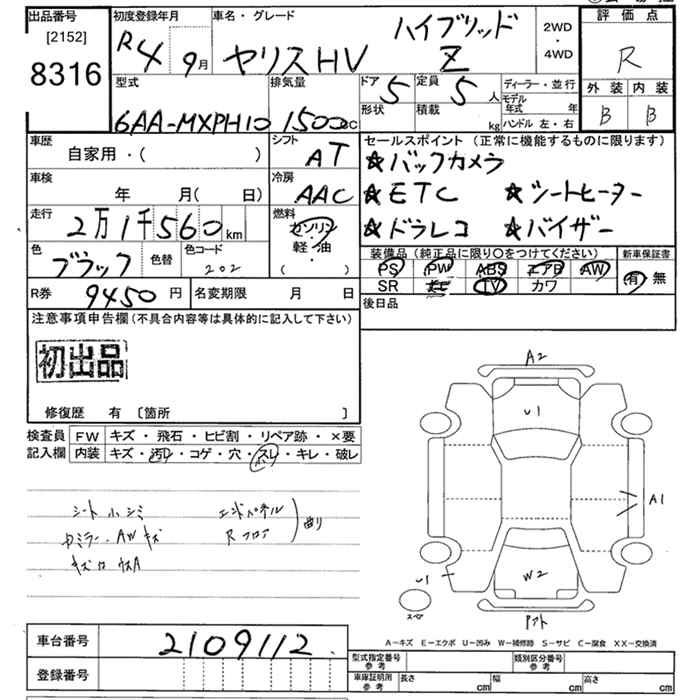 出品番号
[2152]
8316
初度登録年月
R4 9月
車名・グレード
ヤリスHV
ハイブリッド
Z
2WD
・
4WD
評価点
R
外装 内装
B B
型式
6AA-MXPH10
排気量
1500cc
ドア
5
定員
5人
形状
積載
kg
ディーラー・並行
モデル年式 年
ハンドル 左・右
車歴
自家用・( )
シフト
AT
車検
年 月( 日)
冷房
AAC
走行
2万1千560km
燃料
ガソリン
軽・油
( ・ )
色
ブラック
色替
色コード
202
R券 9450円
名変期限 月 日
セールスポイント (正常に機能するものに限ります)
☆バックカメラ
☆ETC ☆シートヒーター
☆ドラレコ ☆バイザー
装備品 (純正品に限り○をつけてください)
新車保証書
PS PW ABS エアB AW
SR TV カワ
有・無
後日品
注意事項申告欄(不具合内容等は具体的に記入して下さい)
初出品
修復歴 有 [箇所 ]
検査員
記入欄
FW キズ・飛石・ヒビ割・リペア跡・×要
内装 キズ・汚レ・コゲ・穴・スレ・キレ・破レ
エンドパネル
Rフロア
曲り
A2
U1
A1
U1
W2
スペア
A-キズ E-エクボ U-凹み W-補修跡 S-サビ C-腐食 XX-交換済
車台番号 2109112
登録番号
型式指定番号
参考
類別区分番号
参考
車庫証明用
参考
長さ cm 幅 cm 高さ cm